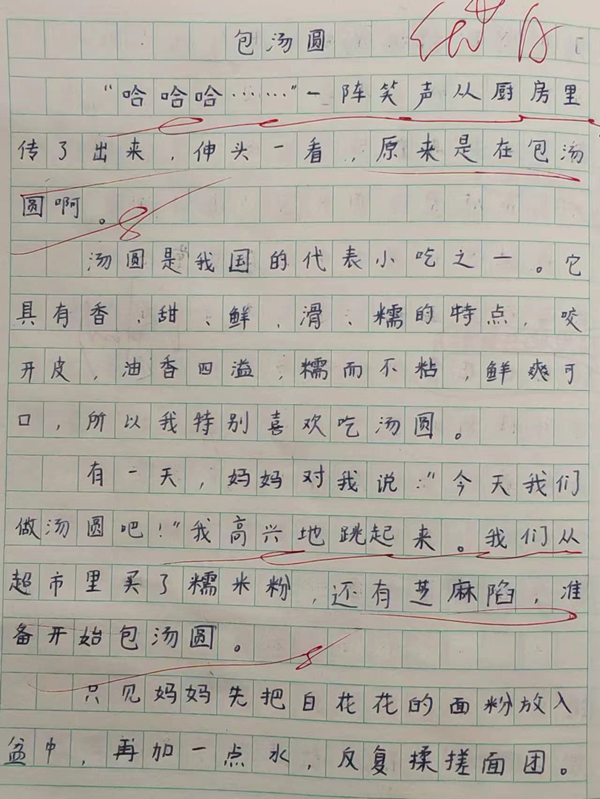 包汤圆
“哈哈哈……”一阵笑声从厨房里
传了出来，伸头一看，原来是在包汤
圆啊。
汤圆是我国的代表小吃之一。它
具有香、甜、鲜、滑、糯的特点，咬
开皮，油香四溢，糯而不粘，鲜爽可
口，所以我特别喜欢吃汤圆。
有一天，妈妈对我说：“今天我们
做汤圆吧！”我高兴地跳起来。我们从
超市里买了糯米粉，还有芝麻陷，准
备开始包汤圆。
只见妈妈先把白花花的面粉放入
盆中，再加一点水，反复揉搓面团。